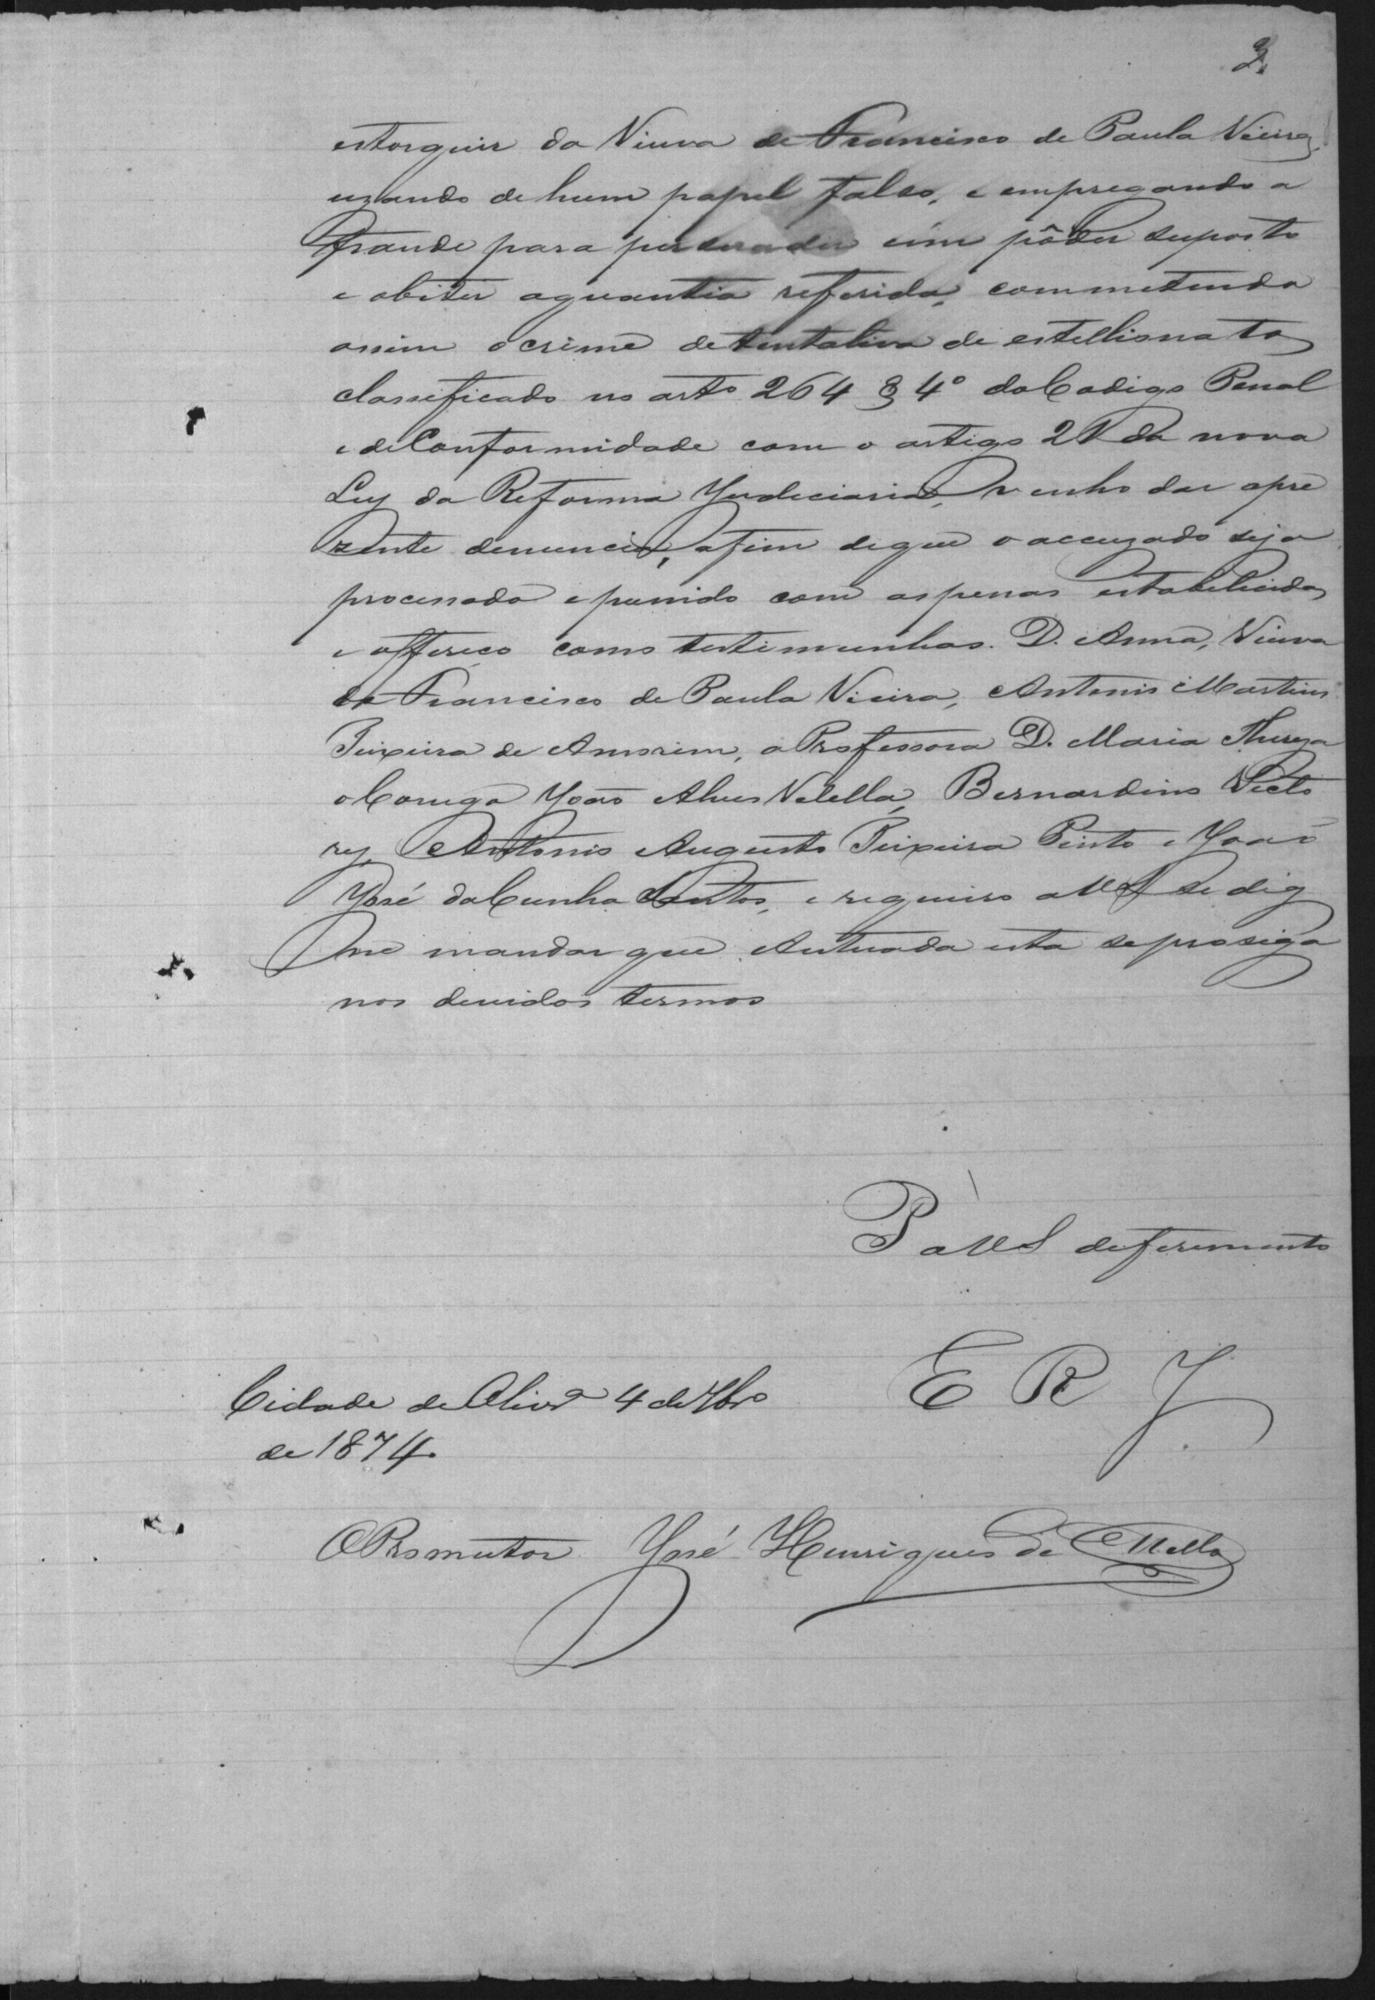 3
estorquir da Viuva de Francisco de Paula Vieira,
uzando de hum papel falso, e empregando a
fraude para persuadir um pôder suposto
e obiter aquantia referida, commetendo
assim o crime detentativa de estellionato
classificado no arto 264 § 4º do Codigo Penal
e de Conformidade com o artigo 21 da nova
Ley da Reforma Judiciaria, venho dar apre
zente denuncia, afim deque o accuzado seja
processado e punido com aspenas estabelicidas
e offereço como testimunhas. D. Anna, Viuva
de Francisco de Paula Vieira, Antonio Martins
Teixeira de Amorim, a Professora D. Maria Thereza
o Conego João Alves Velella, Bernardino Victo
ry, Antonio Augusto Teixeira Pinto e João
José da Cunha Santos, e requeiro a VS se dig
ne mandar que Autuada esta seprosiga
nos devidos termos
P a VS deferimento
E R J.
Cidade de Olivrª 4 de 7bro
de 1874.
O Promutor José Henriques de Mello